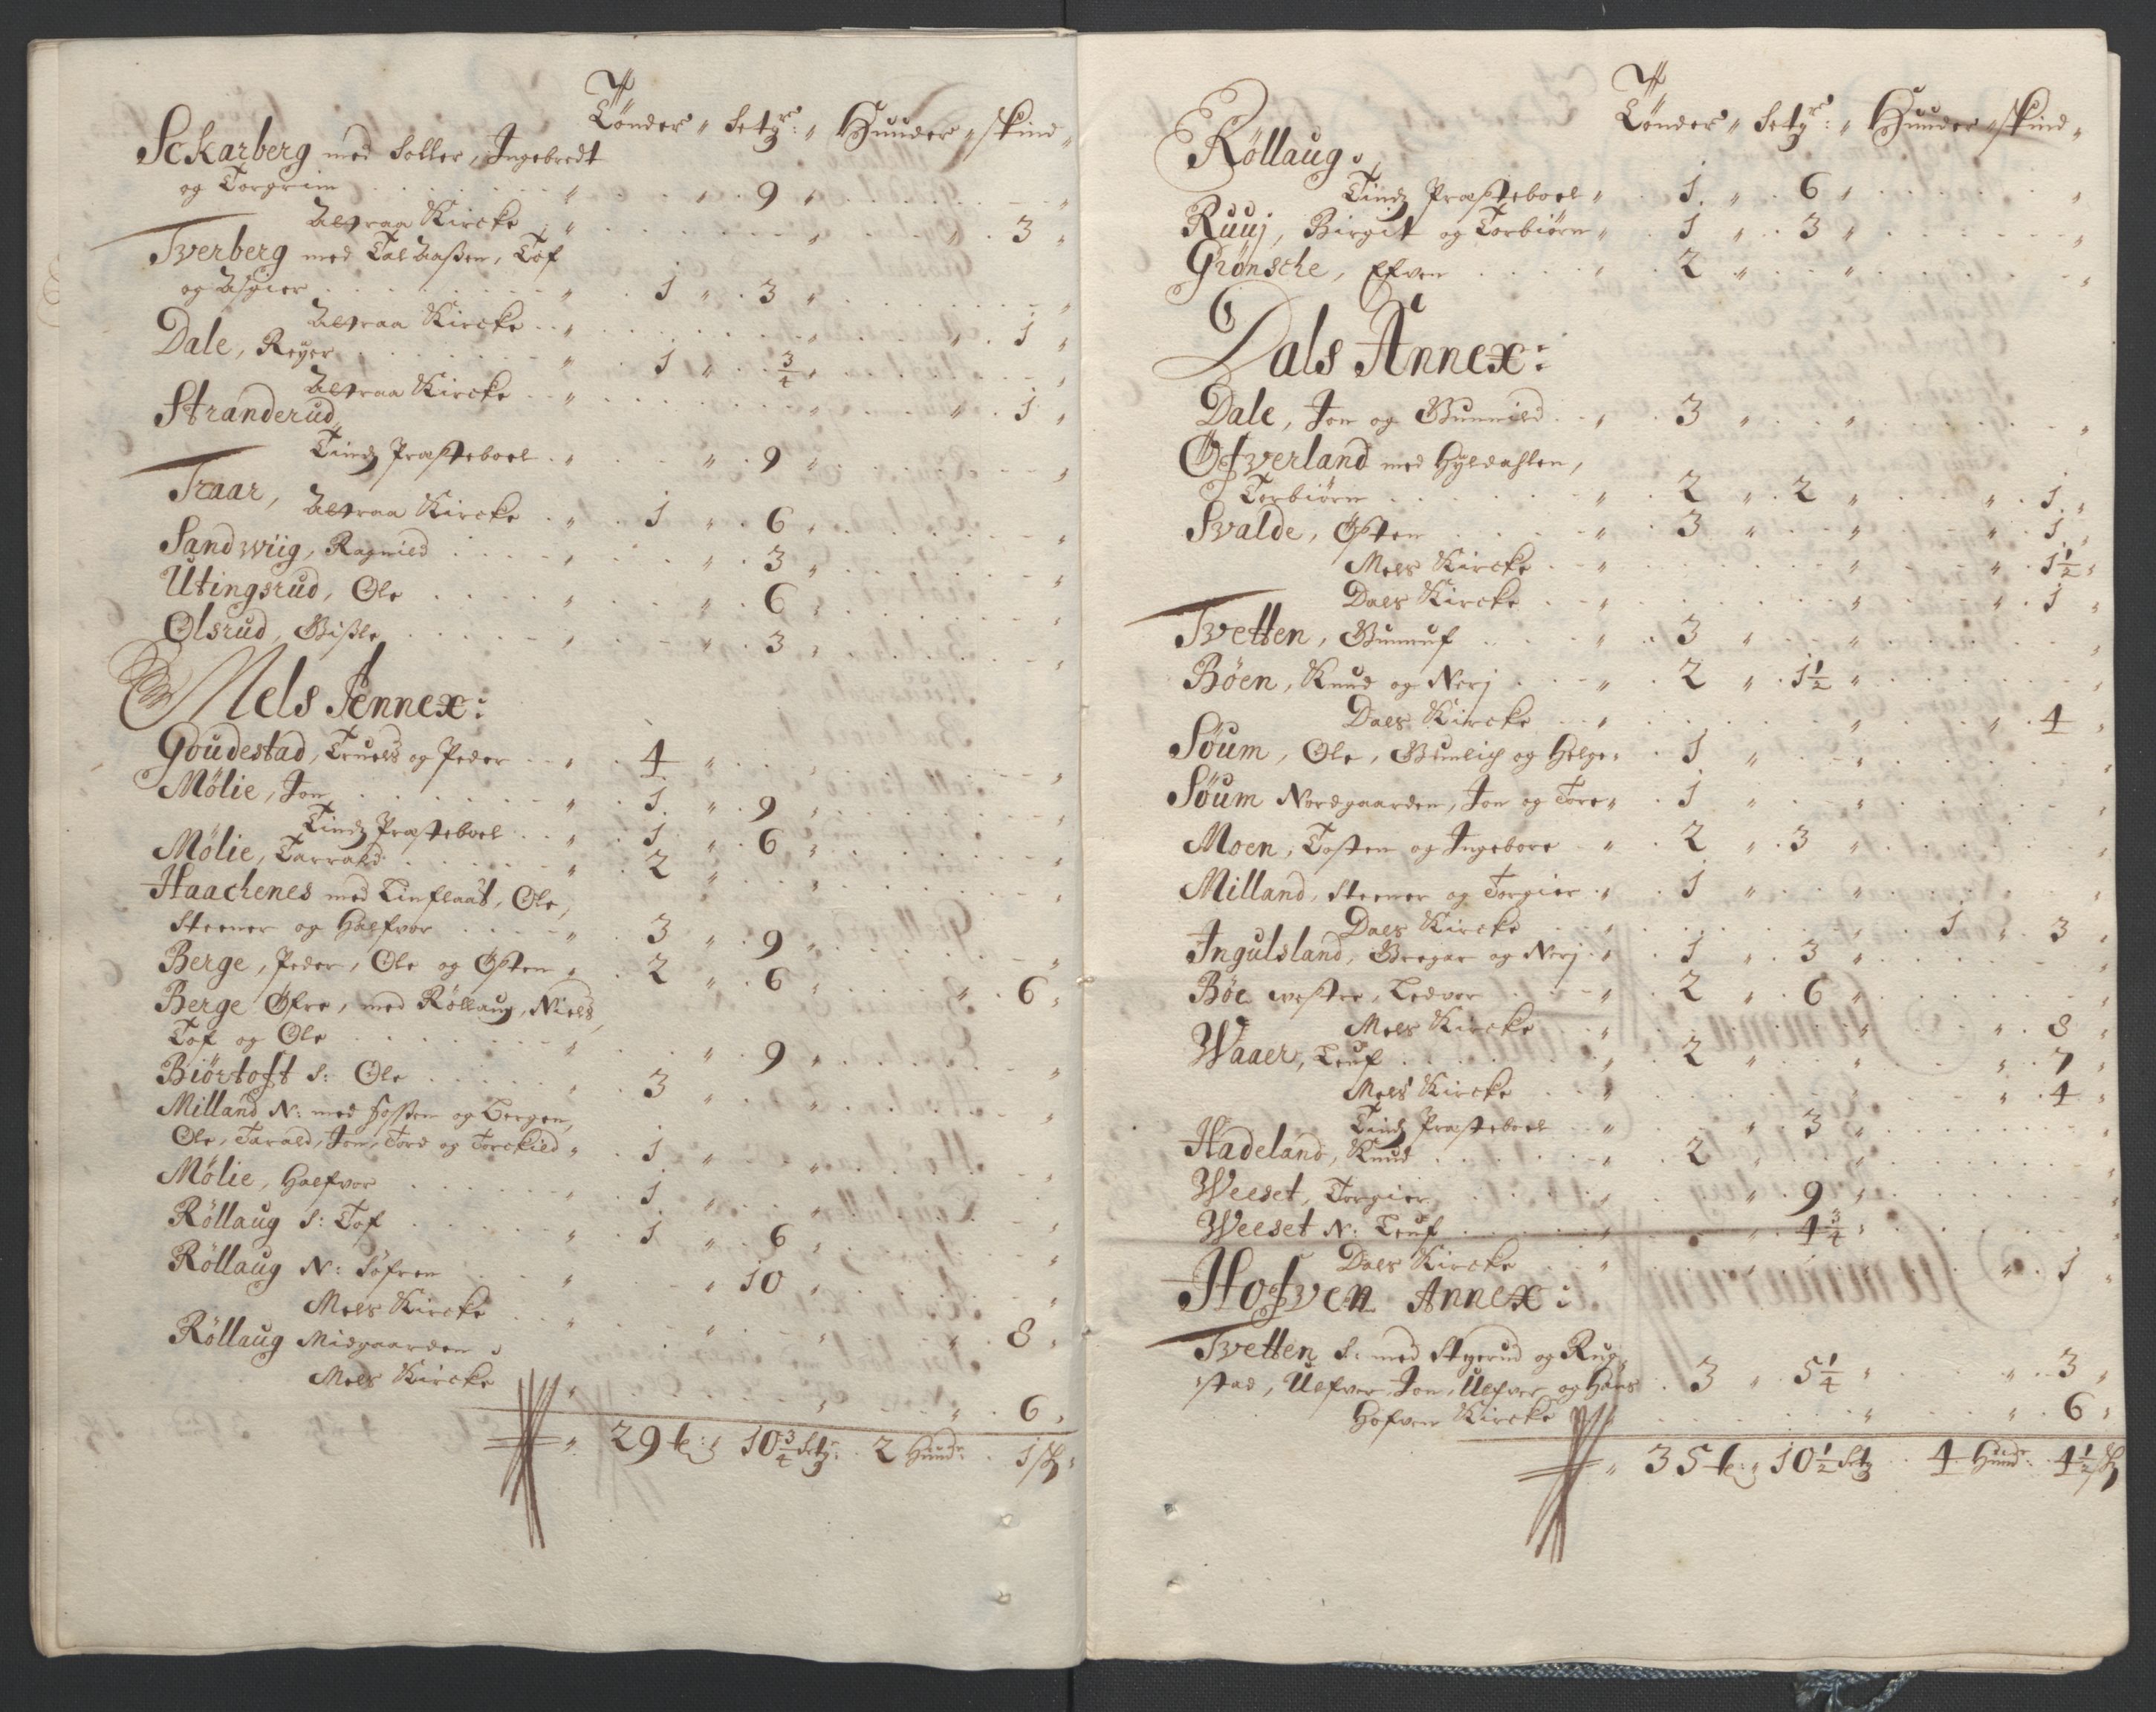 Tønder " Setzr: " Hunder " Skind "
Sckarberg med Soller, Ingebredt
og Torgrim " " 9 " "
Attraa Kircke " " " 3 "
Tverberg med Taluaßen, Tof
og Asgier " 1 " 3 " "
Attraa Kircke " " " 1 "
Dale, Reyer " 1 " 3/4 " "
Attraa Kircke " " " 1 "
Stranderud,
Tindz Præsteboel " " 9 " "
Traar, Attraa Kircke " 1 " 6 " "
Sandwiig, Ragnild " " 3 " "
Utingsrud, Ole " " 6 " "
Olsrud, Gißle " " 3 " "
Mels Annex:
Goudestad, Truels og Peder " 4 " " "
Mølie, Jon " 1 " 9 " "
Tindz Præsteboel " 1 " 6 " "
Mølie, Tarrald " 2 " " "
Haachenes med Linflaat, Ole,
Steener og Halfvor " 3 " 9 " "
Berge, Peder, Ole og Østen " 2 " 6 " " 6 "
Berge Øfre, med Røllaug, Niels,
Tof og Ole " " 9 " "
Biørtoft S: Ole " 3 " " "
Milland N: med Foßen og Bergen,
Ole, Tarald, Jon, Tord og Torckild " 1 " " "
Mølie, Halfvor " 1 " " "
Røllaug S: Tof " 1 " 6 " "
Røllaug N: Søfren " " 10 " "
Mels Kircke " " " " 8 "
Røllaug Midgaarden,
Mels Kircke " " " 6 "
" 29 t: " 10 3/4 Setz: 2 Hund: 1 sk: "
Tønder " Setzr: " Hunder " Skind "
Røllaug,
Tindz Præsteboel " 1 " 6 " "
Ruuj, Birgit og Torbiørn " 1 " 3 " "
Grønsche, Efven " 2 " " "
Dals Annex:
Dale, Jon og Gunnild " 3 " " "
Øfverland med Hyldahlen,
Torbiørn " 2 " 2 " " 1 "
Svalde, Østen " 3 " " " 1 "
Mels Kircke " " " 1 1/2 "
Dals Kircke " " " 1 "
Tvetten, Gunnuf " 3 " " "
Bøen, Knud og Nerj " 2 " 1 1/2 " "
Dals Kircke " " " 4 "
Søum, Ole, Gunlich og Helge " 1 " " "
Søum Nordgaarden, Jon og Tore " 1 " " "
Moen, Tosten og Ingebore " 2 " 3 " "
Milland, Steener og Torgier " 1 " " "
Dals Kircke " " 1 " 3 "
Ingulsland, Gregar og Nerj " 1 " 3 " "
Bøe westre, Ledvor " 2 " 6 " "
Mels Kircke " " " 8 "
Waaer, Leuf " 2 " " " 7 "
Mels Kircke " " " 4 "
Tindz Præsteboel " " 3 " "
Hadeland, Knud " 2 " " "
Weeset, Torgier " " 9 " "
Weeset N: Leuf " " 4 3/4 " "
Dals Kircke " " " 1 "
Hofven Annex:
Tvetten S: med Styerud og Rug,
stad, Ulfver, Jon, Ulfver og Hans 3 " 5 1/4 " " 3 "
Hofven Kircke " " " 6 "
" 35 t: " 10 1/2 Setz 4 Hund: 4 1/2 sk